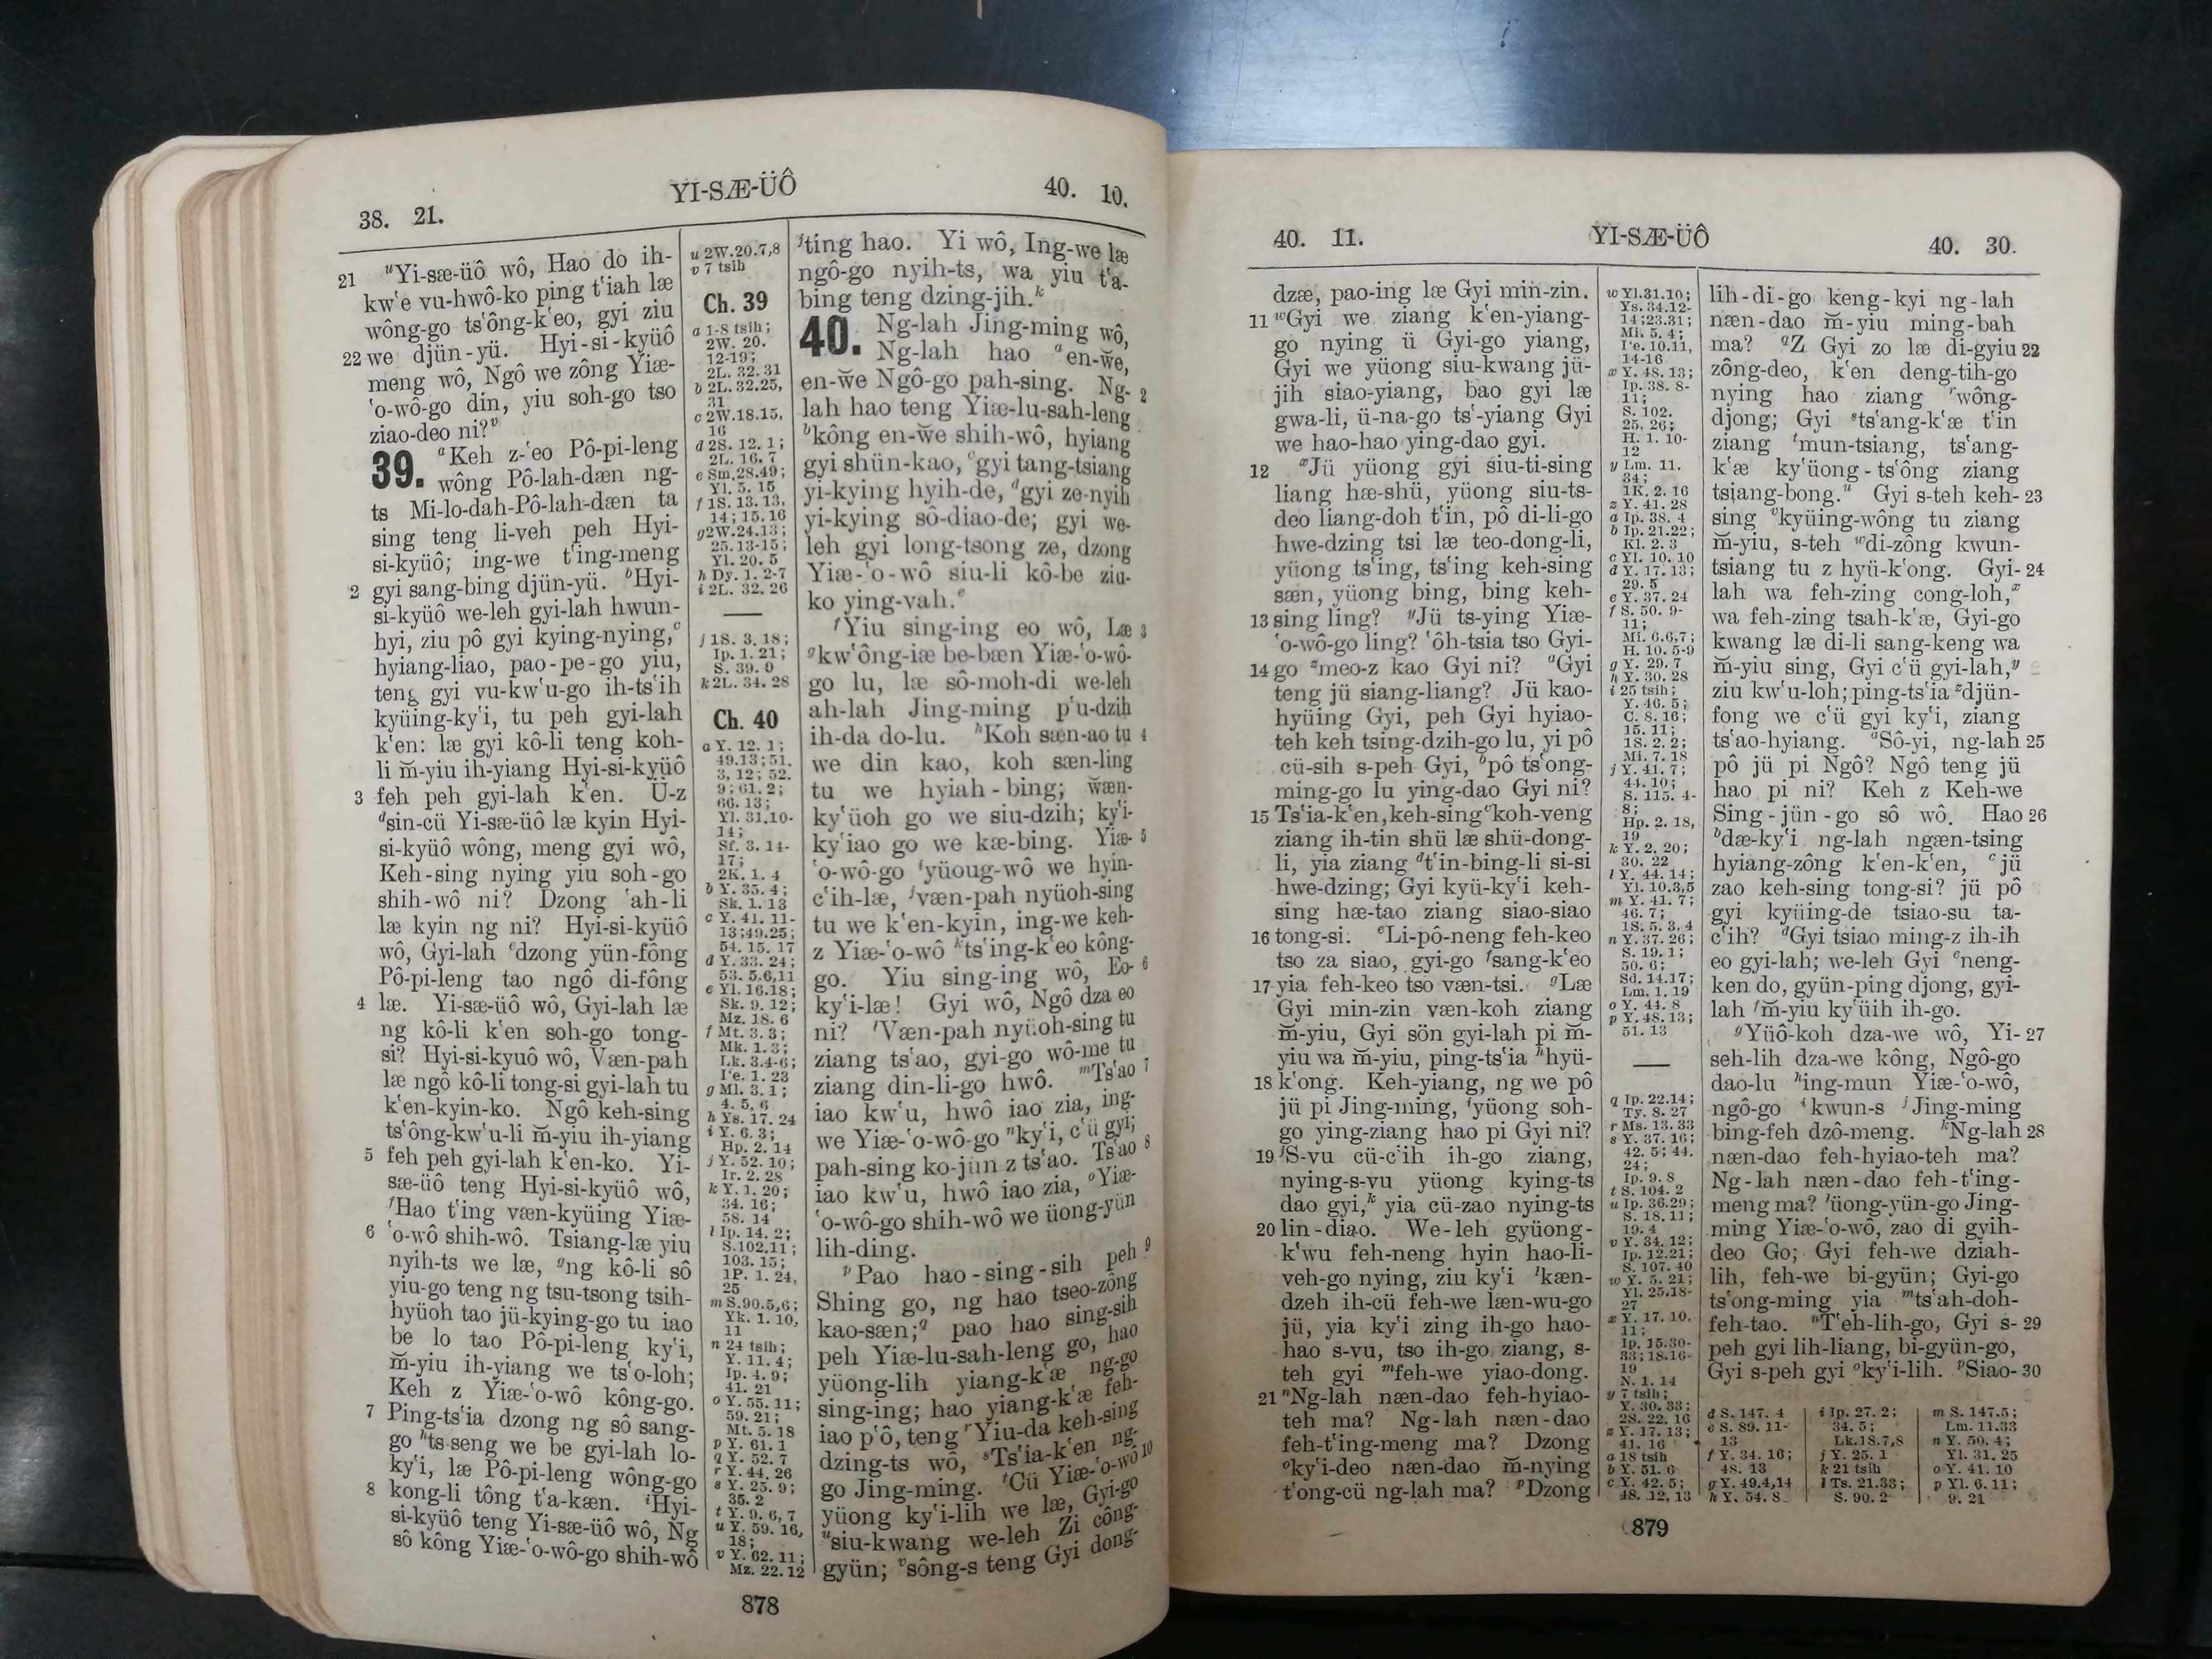 38. 21.
YI-SÆ-ÜÔ
40. 10.
21 ᵘYi-sæ-üô wô, Hao do ih-
kw‘e vu-hwô-ko ping t‘iah læ
wông-go ts‘ông-k‘eo, gyi ziu
22 we djün-yü. Hyi-si-kyüô
meng wô, Ngô we zông Yiæ-
‘o-wô-go din, yiu soh-go tso
ziao-deo ni?ᵛ
39. ᵃKeh z-‘eo Pô-pi-leng
wông Pô-lah-dæn ng-
ts Mi-lo-dah-Pô-lah-dæn ta
sing teng li-veh peh Hyi-
si-kyüô; ing-we t‘ing-meng
2 gyi sang-bing djün-yü. ᵇHyi-
si-kyüô we-leh gyi-lah hwun-
hyi, ziu pô gyi kying-nying,ᶜ
hyiang-liao, pao-pe-go yiu,
teng gyi vu-kw‘u-go ih-ts‘ih
kyüing-ky‘i, tu peh gyi-lah
k‘en: læ gyi kô-li teng koh-
li m̆-yiu ih-yiang Hyi-si-kyüô
3 feh peh gyi-lah k‘en. Ü-z
ᵈsin-cü Yi-sæ-üô læ kyin Hyi-
si-kyüô wông, meng gyi wô,
Keh-sing nying yiu soh-go
shih-wô ni? Dzong ‘ah-li
læ kyin ng ni? Hyi-si-kyüô
wô, Gyi-lah ᵉdzong yün-fông
Pô-pi-leng tao ngô di-fông
4 læ. Yi-sæ-üô wô, Gyi-lah læ
ng kô-li k‘en soh-go tong-
si? Hyi-si-kyuô wô, Væn-pah
læ ngô kô-li tong-si gyi-lah tu
k‘en-kyin-ko. Ngô keh-sing
ts‘ông-kw‘u-li m̆-yiu ih-yiang
5 feh peh gyi-lah k‘en-ko. Yi-
sæ-üô teng Hyi-si-kyüô wô,
ᶠHao t‘ing væn-kyüing Yiæ-
6 ‘o-wô shih-wô. Tsiang-læ yiu
nyih-ts we læ, ᵍng kô-li sô
yiu-go teng ng tsu-tsong tsih-
hyüoh tao jü-kying-go tu iao
be lo tao Pô-pi-leng ky‘i,
m̆-yiu ih-yiang we ts‘o-loh;
Keh z Yiæ-‘o-wô kông-go.
7 Ping-ts‘ia dzong ng sô sang-
go ʰts-seng we be gyi-lah lo-
ky‘i, læ Pô-pi-leng wông-go
8 kong-li tông t‘a-kæn. ⁱHyi-
si-kyüô teng Yi-sæ-üô wô, Ng
sô kông Yiæ-‘o-wô-go shih-wô
u 2W.20.7,8
v 7 tsih
Ch. 39
a 1-8 tsih;
2W. 20.
12-19;
2L. 32.31
b 2L. 32.25,
31
c 2W.18.15,
16
d 2S. 12. 1;
2L. 16. 7
e Sm.28.49;
Yl. 5. 15
f 1S. 13.13,
14; 15.16
g 2W.24.13;
25.13-15;
Yl. 20. 5
h Dy. 1. 2-7
i 2L. 32. 26
j 1S. 3. 18;
Ip. 1. 21;
S. 39. 9
k 2L. 34. 28
Ch. 40
a Y. 12. 1;
49.13; 51.
3, 12; 52.
9; 61. 2;
66. 13;
Yl. 31.10-
14;
Sf. 3. 14-
17;
2K. 1. 4
b Y. 35. 4;
Sk. 1. 13
c Y. 41. 11-
13;49.25;
54. 15. 17
d Y. 33. 24;
53. 5.6,11
e Yl. 16.18;
Sk. 9. 12;
Mz. 18. 6
f Mt. 3. 3;
Mk. 1. 3;
Lk. 3.4-6;
I‘e. 1. 23
g Ml. 3. 1;
4. 5, 6
h Ys. 17. 24
i Y. 6. 3;
Hp. 2. 14
j Y. 52. 10;
Ir. 2. 28
k Y. 1. 20;
34. 16;
58. 14
l Ip. 14. 2;
S.102.11;
103. 15;
1P. 1. 24,
25
m S.90.5,6;
Yk. 1. 10,
11
n 24 tsih;
Y. 11. 4;
Ip. 4. 9;
41. 21
o Y. 55. 11;
59. 21;
Mt. 5. 18
p Y. 61. 1
q Y. 52. 7
r Y. 44. 26
s Y. 25. 9;
35. 2
t Y. 9. 6, 7
u Y. 59. 16,
18;
v Y. 62. 11;
Mz. 22. 12
ʲting hao. Yi wô, Ing-we læ
ngô-go nyih-ts, wa yiu t‘a-
bing teng dzing-jih.ᵏ
40. Ng-lah Jing-ming wô,
Ng-lah hao ᵃen-w̆e,
en-w̆e Ngô-go pah-sing. Ng- 2
lah hao teng Yiæ-lu-sah-leng
ᵇkông en-w̆e shih-wô, hyiang
gyi shün-kao, ᶜgyi tang-tsiang
yi-kying hyih-de, ᵈgyi ze-nyih
yi-kying sô-diao-de; gyi we-
leh gyi long-tsong ze, dzong
Yiæ-‘o-wô siu-li kô-be ziu-
ko ying-vah.ᵉ
ᶠYiu sing-ing eo wô, Læ 3
ᵍkw‘ông-iæ be-bæn Yiæ-‘o-wô-
go lu, læ sô-moh-di we-leh
ah-lah Jing-ming p‘u-dzih
ih-da do-lu. ʰKoh sæn-ao tu 4
we din kao, koh sæn-ling
tu we hyiah-bing; w̆æn-
ky‘üoh go we siu-dzih; ky‘i-
ky‘iao go we kæ-bing. Yiæ- 5
‘o-wô-go ⁱyüoug-wô we hyin-
c‘ih-læ, ʲvæn-pah nyüoh-sing
tu we k‘en-kyin, ing-we keh-
z Yiæ-‘o-wô ᵏts‘ing-k‘eo kông-
go. Yiu sing-ing wô, Eo- 6
ky‘i-læ! Gyi wô, Ngô dza eo
ni? ˡVæn-pah nyüoh-sing tu
ziang ts‘ao, gyi-go wô-me tu
ziang din-li-go hwô. ᵐTs‘ao 7
iao kw‘u, hwô iao zia, ing-
we Yiæ-‘o-wô-go ⁿky‘i, c‘ü gyi;
pah-sing ko-jün z ts‘ao. Ts‘ao 8
iao kw‘u, hwô iao zia, ᵒYiæ-
‘o-wô-go shih-wô we üong-yün
lih-ding.
ᵖPao hao-sing-sih peh 9
Shing go, ng hao tseo-zông
kao-sæn;ᑫ pao hao sing-sih
peh Yiæ-lu-sah-leng go, hao
yüong-lih yiang-k‘æ ng-go
sing-ing; hao yiang-k‘æ feh-
iao p‘ô, teng ʳYiu-da keh-sing
dzing-ts wô, ˢTs‘ia-k‘en ng-
go Jing-ming. ᵗCü Yiæ-‘o-wô 10
yüong ky‘i-lih we læ, Gyi-go
ᵘsiu-kwang we-leh Zi công-
gyün; ᵛsông-s teng Gyi dong-
878
40. 11.
YI-SÆ-ÜÔ
40. 30.
dzæ, pao-ing læ Gyi min-zin.
11 ʷGyi we ziang k‘en-yiang-
go nying ü Gyi-go yiang,
Gyi we yüong siu-kwang jü-
jih siao-yiang, bao gyi læ
gwa-li, ü-na-go ts‘-yiang Gyi
we hao-hao ying-dao gyi.
12 ˣJü yüong gyi siu-ti-sing
liang hæ-shü, yüong siu-ts-
deo liang-doh t‘in, pô di-li-go
hwe-dzing tsi læ teo-dong-li,
yüong ts‘ing, ts‘ing keh-sing
sæn, yüong bing, bing keh-
13 sing ling? ʸJü ts-ying Yiæ-
‘o-wô-go ling? ‘ôh-tsia tso Gyi-
14 go ᶻmeo-z kao Gyi ni? ᵃGyi
teng jü siang-liang? Jü kao-
hyüing Gyi, peh Gyi hyiao-
teh keh tsing-dzih-go lu, yi pô
cü-sih s-peh Gyi, ᵇpô ts‘ong-
ming-go lu ying-dao Gyi ni?
15 Ts‘ia-k‘en, keh-sing ᶜkoh-veng
ziang ih-tin shü læ shü-dong-
li, yia ziang ᵈt‘in-bing-li si-si
hwe-dzing; Gyi kyü-ky‘i keh-
sing hæ-tao ziang siao-siao
16 tong-si. ᵉLi-pô-neng feh-keo
tso za siao, gyi-go ᶠsang-k‘eo
17 yia feh-keo tso væn-tsi. ᵍLæ
Gyi min-zin væn-koh ziang
m̆-yiu, Gyi sön gyi-lah pi m̆-
yiu wa m̆-yiu, ping-ts‘ia ʰhyü-
18 k‘ong. Keh-yiang, ng we pô
jü pi Jing-ming, ⁱyüong soh-
go ying-ziang hao pi Gyi ni?
19 ʲS-vu cü-c‘ih ih-go ziang,
nying-s-vu yüong kying-ts
dao gyi,ᵏ yia cü-zao nying-ts
20 lin-diao. We-leh gyüong-
k‘wu feh-neng hyin hao-li-
veh-go nying, ziu ky‘i ˡkæn-
dzeh ih-cü feh-we læn-wu-go
jü, yia ky‘i zing ih-go hao-
hao s-vu, tso ih-go ziang, s-
teh gyi ᵐfeh-we yiao-dong.
21 ⁿNg-lah næn-dao feh-hyiao-
teh ma? Ng-lah næn-dao
feh-t‘ing-meng ma? Dzong
ᵒky‘i-deo næn-dao m̆-nying
t‘ong-cü ng-lah ma? ᵖDzong
w Yl.31.10;
Ys. 34.12-
14;23.31;
Mi. 5. 4;
I‘e. 10.11,
14-16
x Y. 48. 13;
Ip. 38. 8-
11;
S. 102.
25, 26;
H. 1. 10-
12
y Lm. 11.
34;
1K. 2. 16
z Y. 41. 28
a Ip. 38. 4
b Ip. 21.22;
Kl. 2. 3
c Yl. 10. 10
d Y. 17. 13;
29. 5
e Y. 37. 24
f S. 50. 9-
11;
Mi. 6.6,7;
H. 10. 5-9
g Y. 29. 7
h Y. 30. 28
i 25 tsih;
Y. 46. 5;
C. 8. 16;
15. 11;
1S. 2. 2;
Mi. 7. 18
j Y. 41. 7;
44. 10;
S. 115. 4-
8;
Hp. 2. 18,
19
k Y. 2. 20;
30. 22
l Y. 44. 14;
Yl. 10.3,5
m Y. 41. 7;
46. 7;
1S. 5. 3, 4
n Y. 37. 26;
S. 19. 1;
50. 6;
Sd. 14.17;
Lm. 1. 19
o Y. 44. 8
p Y. 48. 13;
51. 13
q Ip. 22.14;
Ty. 8. 27
r Ms. 13. 33
s Y. 37. 16;
42. 5; 44.
24;
Ip. 9. 8
t S. 104. 2
u Ip. 36.29;
S. 18. 11;
19. 4
v Y. 34. 12;
Ip. 12.21;
S. 107. 40
w Y. 5. 21;
Yl. 25.18-
27
x Y. 17. 10,
11;
Ip. 15.30-
33;18.16-
19
N. 1. 14
y 7 tsih;
Y. 30. 33;
2S. 22. 16
z Y. 17. 13;
41. 16
a 18 tsih
b Y. 51. 6
c Y. 42. 5;
48. 12, 13
lih-di-go keng-kyi ng-lah
næn-dao m̆-yiu ming-bah
ma? ᑫZ Gyi zo læ di-gyiu 22
zông-deo, k‘en deng-tih-go
nying hao ziang ʳwông-
djong; Gyi ˢts‘ang-k‘æ t‘in
ziang ᵗmun-tsiang, ts‘ang-
k‘æ ky‘üong-ts‘ông ziang
tsiang-bong.ᵘ Gyi s-teh keh- 23
sing ᵛkyüing-wông tu ziang
m̆-yiu, s-teh ʷdi-zông kwun-
tsiang tu z hyü-k‘ong. Gyi- 24
lah wa feh-zing cong-loh,ˣ
wa feh-zing tsah-k‘æ, Gyi-go
kwang læ di-li sang-keng wa
m̆-yiu sing, Gyi c‘ü gyi-lah,ʸ
ziu kw‘u-loh; ping-ts‘ia ᶻdjün-
fong we c‘ü gyi ky‘i, ziang
ts‘ao-hyiang. ᵃSô-yi, ng-lah 25
pô jü pi Ngô? Ngô teng jü
hao pi ni? Keh z Keh-we
Sing-jün-go sô wô. Hao 26
ᵇdæ-ky‘i ng-lah ngæn-tsing
hyiang-zông k‘en-k‘en, ᶜjü
zao keh-sing tong-si? jü pô
gyi kyüing-de tsiao-su ta-
c‘ih? ᵈGyi tsiao ming-z ih-ih
eo gyi-lah; we-leh Gyi ᵉneng-
ken do, gyün-ping djong, gyi-
lah ᶠm̆-yiu ky‘üih ih-go.
ᵍYüô-koh dza-we wô, Yi- 27
seh-lih dza-we kông, Ngô-go
dao-lu ʰing-mun Yiæ-‘o-wô,
ngô-go ⁱkwun-s ʲJing-ming
bing-feh dzô-meng. ᵏNg-lah 28
næn-dao feh-hyiao-teh ma?
Ng-lah næn-dao feh-t‘ing-
meng ma? ˡüong-yün-go Jing-
ming Yiæ-‘o-wô, zao di gyih-
deo Go; Gyi feh-we dziah-
lih, feh-we bi-gyün; Gyi-go
ts‘ong-ming yia ᵐts‘ah-doh-
feh-tao. ⁿT‘eh-lih-go, Gyi s- 29
peh gyi lih-liang, bi-gyün-go,
Gyi s-peh gyi ᵒky‘i-lih. ᵖSiao- 30
d S. 147. 4
e S. 89. 11-
13
f Y. 34. 16;
48. 13
g Y. 49.4,14
h Y. 54. 8
i Ip. 27. 2;
34. 5;
Lk.18.7,8
j Y. 25. 1
k 21 tsih
l Ts. 21.33;
S. 90. 2
m S. 147.5;
Lm. 11.33
n Y. 50. 4;
Yl. 31. 25
o Y. 41. 10
p Yl. 6. 11;
9. 21
879